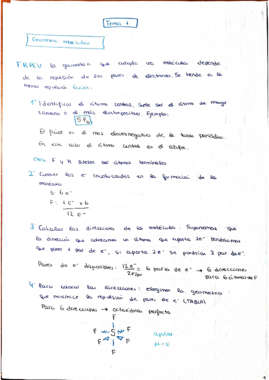 Tema 1
Geometría molecular
TRPECV la geometría que adopta una molécula depende
de la repulsión de los pares de electrones. Se tiende a la
menor repulsión
1º Identificar el átomo central. Suele ser el átomo de mayor
tamaño o el más electropositivo. Ejemplo:
SF6
El flúor es el más electronegativo de la tabla periódica.
En este caso el átomo central es el azufre.
F y H suelen ser átomos terminales
2º Contar los e- involucrados en la formación de la
molécula
S: 6 e-
F: 1 e- x 6
12 e-
3 Calcular las direcciones de la molécula. Suponemos que
la dirección que colocamos un átomo que aporta 2e- tendríamos
que poner 1 par de e-, si aporta 2e- se pondrían 2 par de e-.
Pares de e- disponibles: 12 e- / 2e-/par = 6 pares de e- → 6 direcciones
para 6 átomos de F
4º Para colocar las direcciones: elegimos la geometría
que minimice la repulsión de pares de e- (TABLA)
Para 6 direcciones → octaedro perfecto
F
F F
S
F F
F
apolar
μ = 0